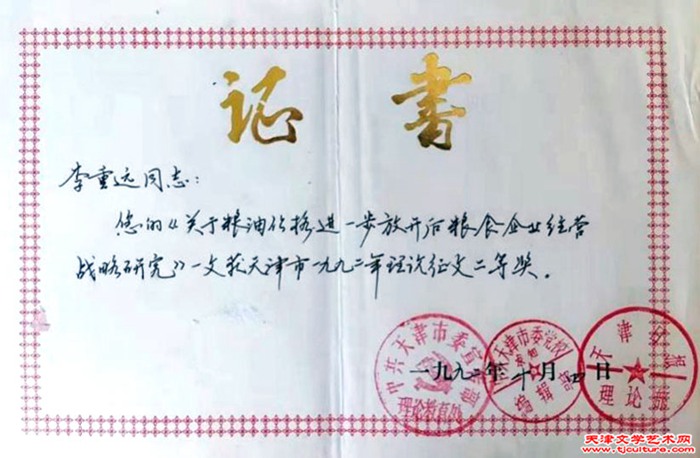 证书
李重远同志:
您的《关于粮油价格进一步放开后粮食企业经营
战略研究》一文获天津市一九九二年理论征文二等奖。
中共天津市委宣传部
理论教育处
天津市委党校
编辑部
天津日报
理论部
一九九二年十月 日
天津文学艺术网
www.tjculture.com